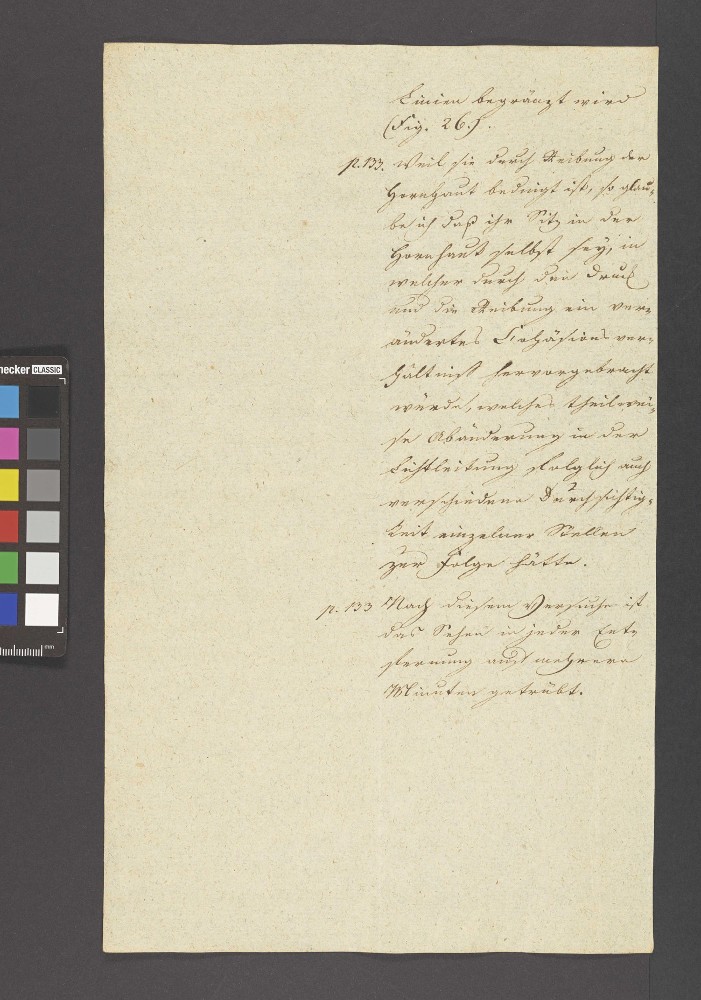 Linien begränzt wird
(Fig. 26.).
p. 133. Weil sie durch Reibung der
Hornhaut bedingt ist, so glau-
be ich daß ihr Sitz in der
Hornhaut selbst sey, in
welcher durch den Druck
und die Reibung ein ver-
ändertes Cohäsionsver-
hältniß hervorgebracht
würde, welches theilwei-
se Abänderung in der
Lichtleitung folglich auch
verschiedene Durchsichtig-
keit einzelner Stellen
zur Folge hätte.
p. 133 Nach diesem Versuche ist
das Sehen in jeder Ent-
fernung auf mehrere
Minuten getrübt.
necker CLASSIC
mm